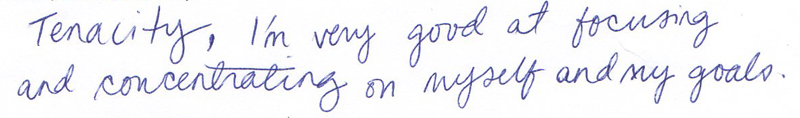 Tenacity, I'm very good at focusing
and concentrating on myself and my goals.